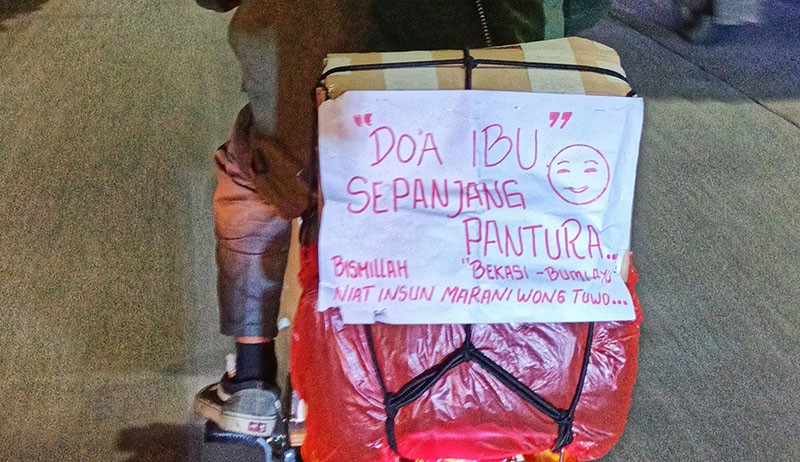 "DO'A IBU"
SEPANJANG
PANTURA...
BISMILLAH "BEKASI - BUMIAYU"
NIAT INSUN MARANI WONG TUWO...